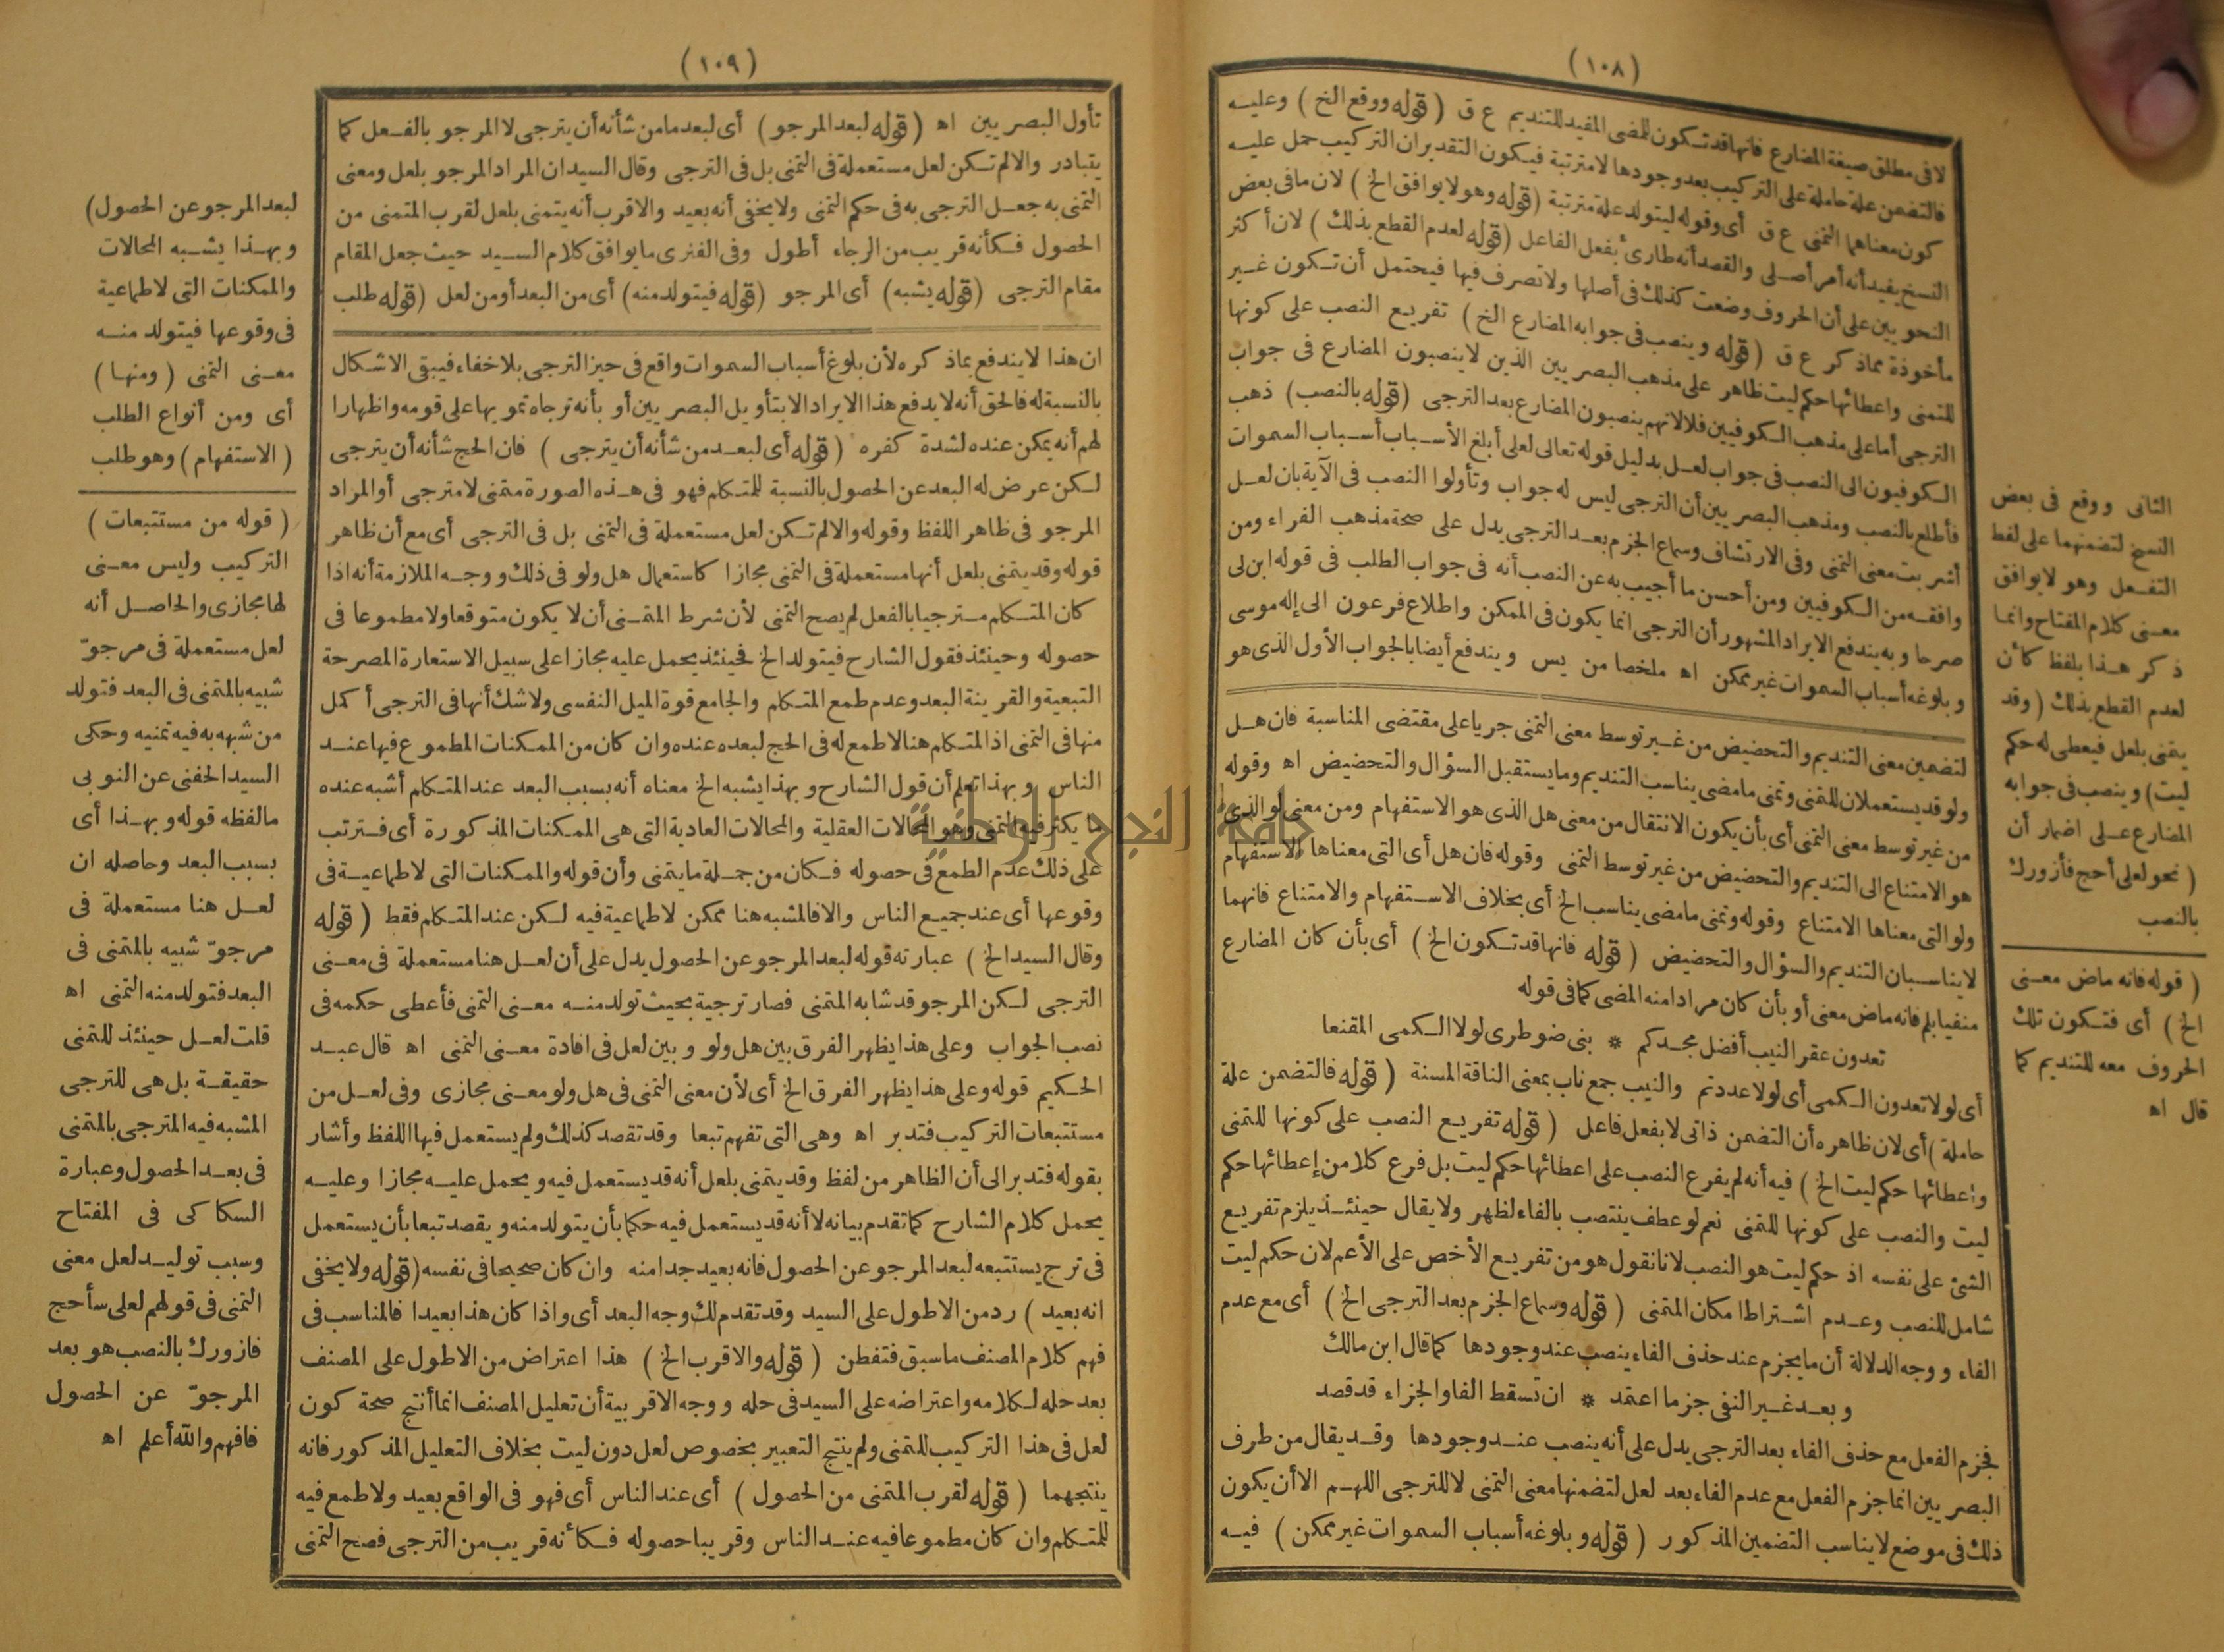 (١٠٨)
لا فى مطلق صيغة المضارع فانها قد تكون للمضى المفيد للتنديم ع ق (قوله ووقع الخ) وعليه
فالتضمن علة حاملة على التركيب بعد وجودها لا مترتبة فيكون التقدير ان التركيب حمل عليه
كون معناهما التمنى ع ق أى وقوله ليتولد علة مترتبة (قوله وهو لا يوافق الخ) لان ما فى بعض
النسخ يفيد أنه أمر أصلى والقصد أنه طارئ بفعل الفاعل (قوله لعدم القطع بذلك) لان أكثر
النحويين على أن الحروف وضعت كذلك فى أصلها ولا تصرف فيها فيحتمل أن تكون غير
مأخوذة مما ذكر ع ق (قوله وينصب فى جوابه المضارع الخ) تفريع النصب على كونها
للتمنى واعطائها حكم ليت ظاهر على مذهب البصريين الذين لا ينصبون المضارع فى جواب
الترجى أما على مذهب الكوفيين فلا لانهم ينصبون المضارع بعد الترجى (قوله بالنصب) ذهب
الكوفيون الى النصب فى جواب لعل بدليل قوله تعالى لعلى أبلغ الأسباب أسباب السموات
فأطلع بالنصب ومذهب البصريين أن الترجى ليس له جواب وتأولوا النصب فى الآية بان لعل
أشربت معنى التمنى وفى الارتشاف وسماع الجزم بعد الترجى يدل على صحة مذهب الفراء ومن
وافقه من الكوفيين ومن أحسن ما أجيب به عن النصب أنه فى جواب الطلب فى قوله ابن لى
صرحا وبه يندفع الايراد المشهور أن الترجى انما يكون فى الممكن واطلاع فرعون الى إله موسى
وبلوغه أسباب السموات غير ممكن اه ملخصا من يس ويندفع أيضا بالجواب الأول الذى هو
لتضمين معنى التنديم والتحضيض من غير توسط معنى التمنى جريا على مقتضى المناسبة فان هل
ولو قد يستعملان للتمنى وتمنى ما مضى يناسب التنديم وما يستقبل السؤال والتحضيض اه وقوله
من غير توسط معنى التمنى أى بأن يكون الانتقال من معنى هل الذى هو الاستفهام ومن معنى لو الذى
هو الامتناع الى التنديم والتحضيض من غير توسط التمنى وقوله فان هل أى التى معناها الاستفهام
ولو التى معناها الامتناع وقوله وتمنى ما مضى يناسب الخ أى بخلاف الاستفهام والامتناع فانهما
لا يناسبان التنديم والسؤال والتحضيض (قوله فانها قد تكون الخ) أى بأن كان المضارع
منفيا بلم فانه ماض معنى أو بأن كان مرادا منه المضى كما فى قوله
تعدون عقر النيب أفضل مجدكم * بنى ضوطرى لولا الكمى المقنعا
أى لولا تعدون الكمى أى لولا عددتم والنيب جمع ناب بمعنى الناقة المسنة (قوله فالتضمن علة
حاملة) أى لان ظاهره أن التضمن ذاتى لا بفعل فاعل (قوله تفريع النصب على كونها للتمنى
واعطائها حكم ليت الخ) فيه أنه لم يفرع النصب على اعطائها حكم ليت بل فرع كلا من إعطائها حكم
ليت والنصب على كونها للتمنى نعم لو عطف ينتصب بالفاء لظهر ولا يقال حينئذ يلزم تفريع
الشئ على نفسه اذ حكم ليت هو النصب لانا نقول هو من تفريع الأخص على الأعم لان حكم ليت
شامل للنصب وعدم اشتراط امكان المتمنى (قوله وسماع الجزم بعد الترجى الخ) أى مع عدم
الفاء ووجه الدلالة أن ما يجزم عند حذف الفاء ينصب عند وجودها كما قال ابن مالك
وبعد غير النفى جزما اعتمد * ان تسقط الفا والجزاء قد قصد
فجزم الفعل مع حذف الفاء بعد الترجى يدل على أنه ينصب عند وجودها وقد يقال من طرف
البصريين انما جزم الفعل مع عدم الفاء بعد لعل لتضمنها معنى التمنى لا للترجى اللهم الا أن يكون
ذلك فى موضع لا يناسب التضمين المذكور (قوله وبلوغه أسباب السموات غير ممكن) فيه
الثانى ووقع فى بعض
النسخ لتضمنهما على لفظ
التفعل وهو لا يوافق
معنى كلام المفتاح وانما
ذكر هذا بلفظ كأن
لعدم القطع بذلك (وقد
يتمنى بلعل فيعطى له حكم
ليت) وينصب فى جوابه
المضارع على اضمار أن
(نحو لعلى أحج فأزورك
بالنصب
(قوله فانه ماض معنى
الخ) أى فتكون تلك
الحروف معه للتنديم كما
قال اه
(١٠٩)
تأول البصريين اه (قوله لبعد المرجو) أى لبعد ما من شأنه أن يترجى لا المرجو بالفعل كما
يتبادر والا لم تكن لعل مستعملة فى التمنى بل فى الترجى وقال السيد ان المراد المرجو بلعل ومعنى
التمنى به جعل الترجى به فى حكم التمنى ولا يخفى أنه بعيد والاقرب أنه يتمنى بلعل لقرب المتمنى من
الحصول فكأنه قريب من الرجاء أطول وفى الفنرى ما يوافق كلام السيد حيث جعل المقام
مقام الترجى (قوله يشبه) أى المرجو (قوله فيتولد منه) أى من البعد أو من لعل (قوله طلب
ان هذا لا يندفع بما ذكره لأن بلوغ أسباب السموات واقع فى حيز الترجى بلا خفاء فيبقى الاشكال
بالنسبة له فالحق أنه لا يدفع هذا الايراد الا بتأويل البصريين أو بأنه ترجاه تمويها على قومه واظهارا
لهم أنه يمكن عنده لشدة كفره (قوله أى لبعد من شأنه أن يترجى) فان الحج شأنه أن يترجى
لكن عرض له البعد عن الحصول بالنسبة للمتكلم فهو فى هذه الصورة متمنى لا مترجى أو المراد
المرجو فى ظاهر اللفظ وقوله والا لم تكن لعل مستعملة فى التمنى بل فى الترجى أى مع أن ظاهر
قوله وقد يتمنى بلعل أنها مستعملة فى التمنى مجازا كاستعمال هل ولو فى ذلك ووجه الملازمة أنه اذا
كان المتكلم مترجيا بالفعل لم يصح التمنى لأن شرط المتمنى أن لا يكون متوقعا ولا مطموعا فى
حصوله وحينئذ فقول الشارح فيتولد الخ فحينئذ يحمل عليه مجازا على سبيل الاستعارة المصرحة
التبعية والقرينة البعد وعدم طمع المتكلم والجامع قوة الميل النفسى ولا شك أنها فى الترجى أكمل
منها فى التمنى اذ المتكلم هنا لا طمع له فى الحج لبعده عنده وان كان من الممكنات المطموع فيها عند
الناس وبهذا تعلم أن قول الشارح وبهذا يشبه الخ معناه أنه بسبب البعد عند المتكلم أشبه عنده
ما يكثر فيه التمنى وهو المحالات العقلية والمحالات العادية التى هى الممكنات المذكورة أى فترتب
على ذلك عدم الطمع فى حصوله فكان من جملة ما يتمنى وأن قوله والممكنات التى لا طماعية فى
وقوعها أى عند جميع الناس والا فالمشبه هنا ممكن لا طماعية فيه لكن عند المتكلم فقط (قوله
وقال السيد الخ) عبارته قوله لبعد المرجو عن الحصول يدل على أن لعل هنا مستعملة فى معنى
الترجى لكن المرجو قد شابه المتمنى فصار ترجيه بحيث تولد منه معنى التمنى فأعطى حكمه فى
نصب الجواب وعلى هذا يظهر الفرق بين هل ولو وبين لعل فى افادة معنى التمنى اه قال عبد
الحكيم قوله وعلى هذا يظهر الفرق الخ أى لأن معنى التمنى فى هل ولو معنى مجازى وفى لعل من
مستتبعات التركيب فتدبر اه وهى التى تفهم تبعا وقد تقصد كذلك ولم يستعمل فيها اللفظ وأشار
بقوله فتدبر الى أن الظاهر من لفظ وقد يتمنى بلعل أنه قد يستعمل فيه ويحمل عليه مجازا وعليه
يحمل كلام الشارح كما تقدم بيانه لا أنه قد يستعمل فيه حكما بأن يتولد منه ويقصد تبعا بأن يستعمل
فى ترج يستتبعه لبعد المرجو عن الحصول فانه بعيد جدا منه وان كان صحيحا فى نفسه (قوله ولا يخفى
انه بعيد) رد من الاطول على السيد وقد تقدم لك وجه البعد أى واذا كان هذا بعيدا فالمناسب فى
فهم كلام المصنف ما سبق فتفطن (قوله والاقرب الخ) هذا اعتراض من الاطول على المصنف
بعد حله لكلامه واعتراضه على السيد فى حله ووجه الاقربية أن تعليل المصنف انما أنتج صحة كون
لعل فى هذا التركيب للتمنى ولم ينتج التعبير بخصوص لعل دون ليت بخلاف التعليل المذكور فانه
ينتجهما (قوله لقرب المتمنى من الحصول) أى عند الناس أى فهو فى الواقع بعيد ولا طمع فيه
للمتكلم وان كان مطموعا فيه عند الناس وقريبا حصوله فكأنه قريب من الترجى فصح التمنى
لبعد المرجو عن الحصول)
وبهذا يشبه المحالات
والممكنات التى لا طماعية
فى وقوعها فيتولد منه
معنى التمنى (ومنها)
أى ومن أنواع الطلب
(الاستفهام) وهو طلب
(قوله من مستتبعات)
التركيب وليس معنى
لها مجازى والحاصل أنه
لعل مستعملة فى مرجوّ
شبيه بالمتمنى فى البعد فتولد
من شبهه به فيه تمنيه وحكى
السيد الحفنى عن النوبى
ما لفظه قوله وبهذا أى
بسبب البعد وحاصله ان
لعل هنا مستعملة فى
مرجوّ شبيه بالمتمنى فى
البعد فتولد منه التمنى اه
قلت لعل حينئذ للتمنى
حقيقة بل هى للترجى
المشبه فيه المترجى بالمتمنى
فى بعد الحصول وعبارة
السكاكى فى المفتاح
وسبب توليد لعل معنى
التمنى فى قولهم لعلى سأحج
فازورك بالنصب هو بعد
المرجوّ عن الحصول
فافهم والله أعلم اه
جامعة النجاح الوطنية